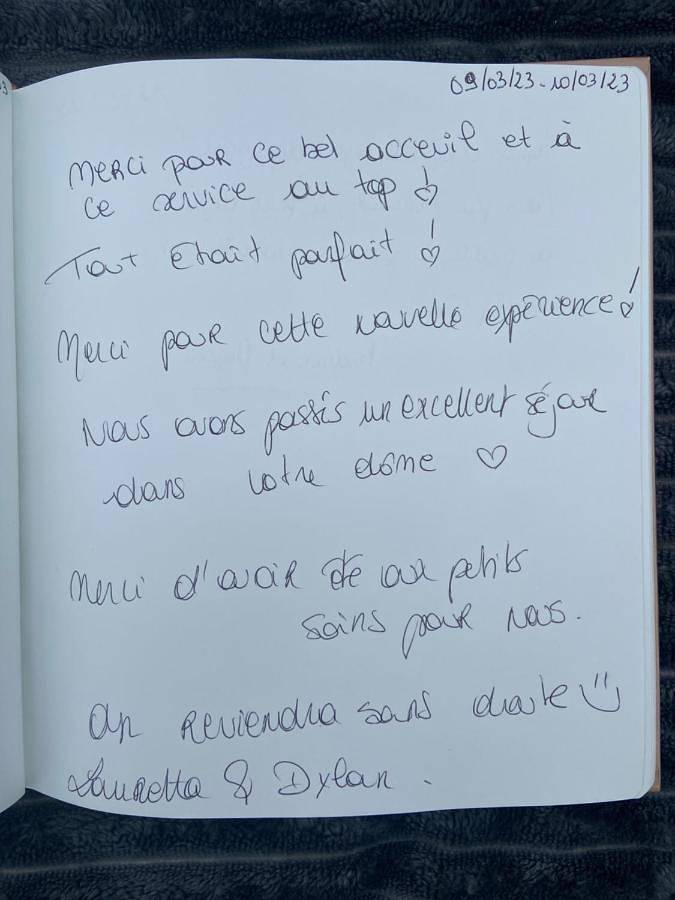 09/03/23-10/03/23
Merci pour ce bel acceuil et à
ce service au top ♡!
Tout était parfait ♡!
Merci pour cette nouvelle expérience!
Nous avons passés un excellent séjour
dans votre dôme ♡
Merci d'avoir été aux petits
soins pour nous.
On reviendra sans doute
Lauretta & Dylan.